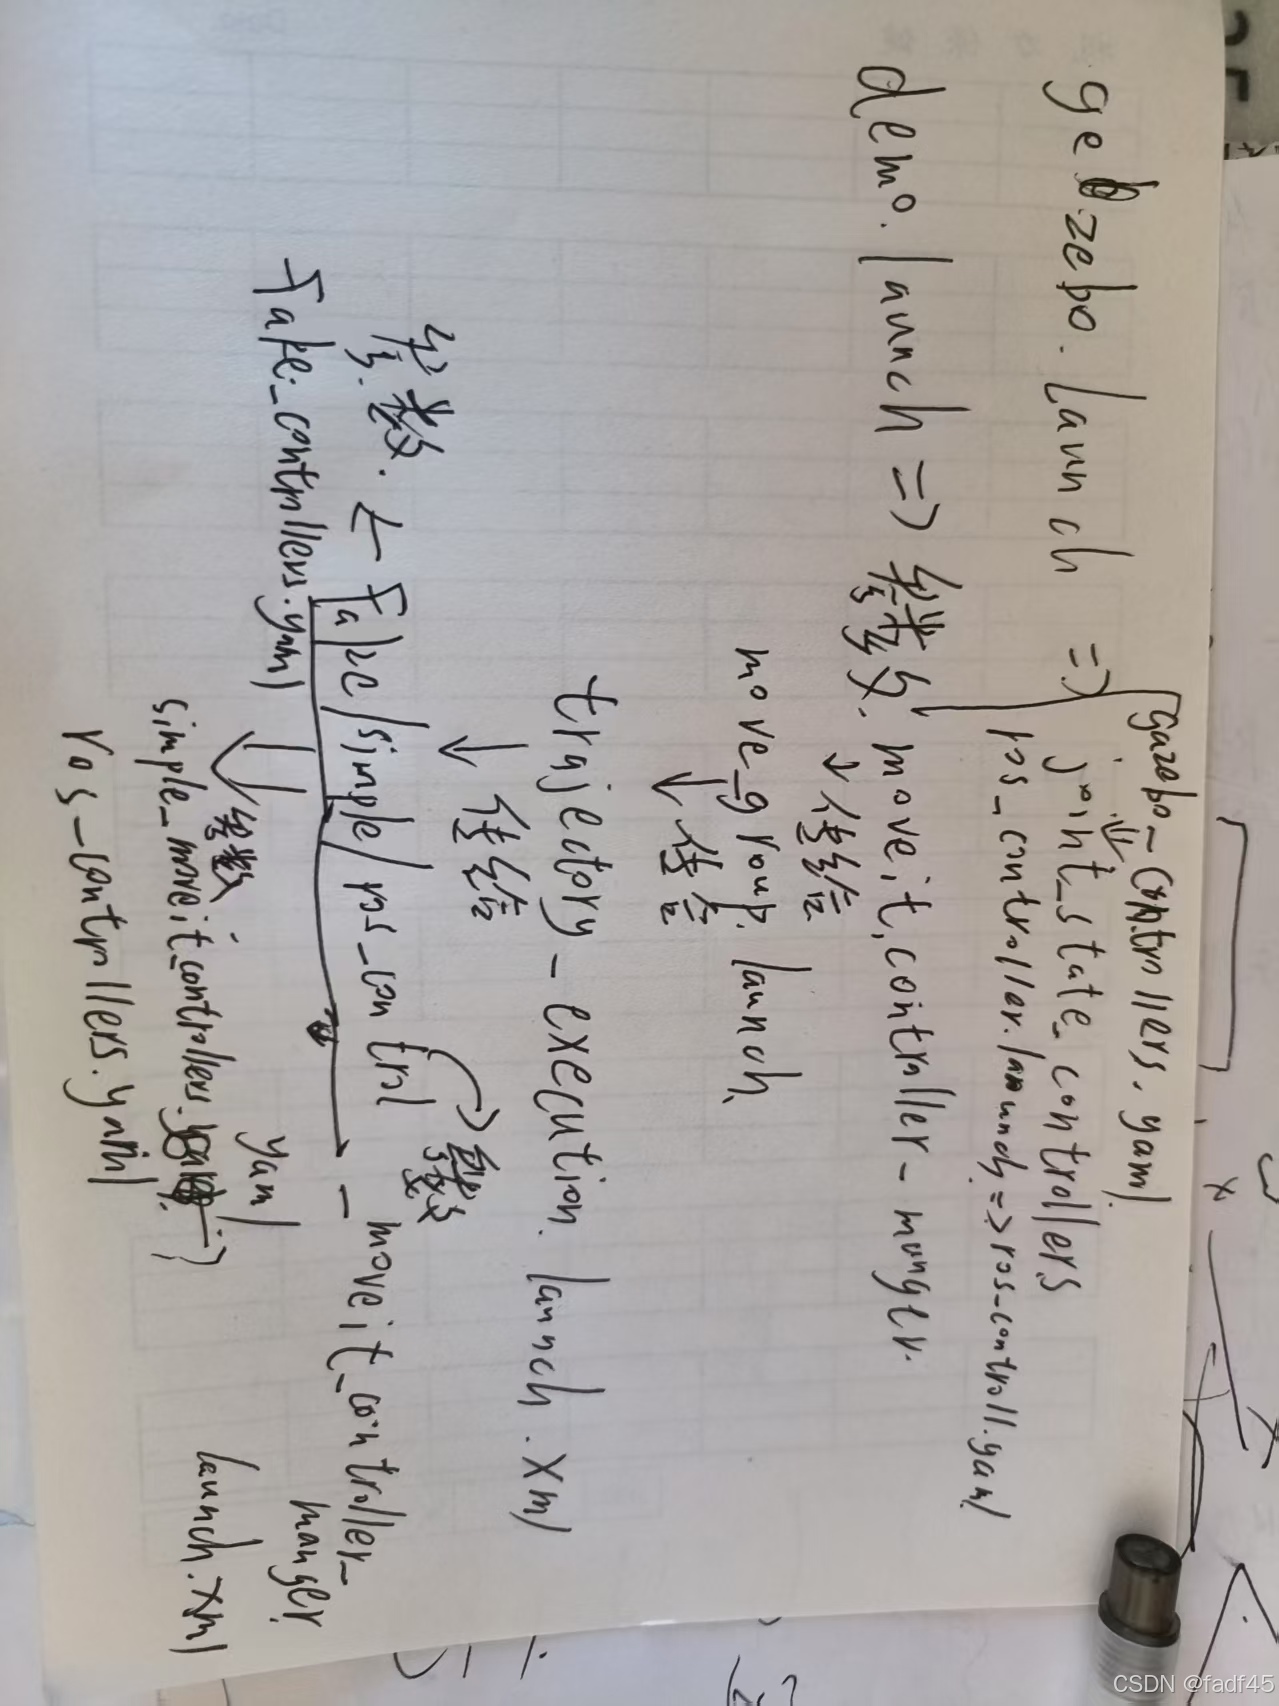 gazebo_controllers.yaml
gebzebo.launch => joint_state_controllers
ros_controller.launch => ros_controll.yaml
demo.launch => 参数. moveit_controller_manger.
↓ 传给
move_group.launch
↓ 传给
trajectory_execution.launch.xml
↓ 传给
参数. ← Fake/simple/ros_control_moveit_controller_manger launch.xml
参数
Fake_controllers.yaml
参数
yaml
simple_moveit_controllers.
ros_controllers.yaml
CSDN @fadf45